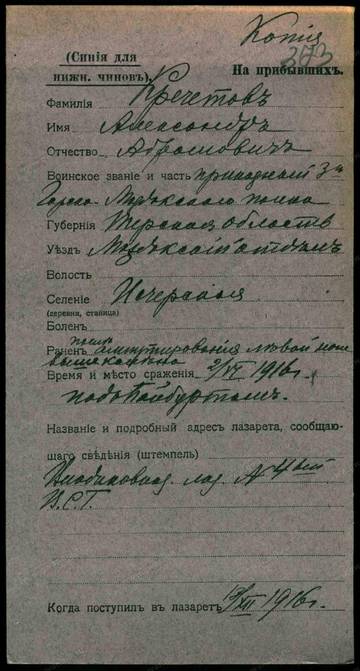 Копія
373
(Синія для
нижн. чиновъ).
На прибывшихъ.
Фамилія Кречетовъ
Имя Александръ
Отчество Абрамовичъ
Воинское званіе и часть приказный 3го
Горско-Моздокскаго полка
Губернія Терская область
Уѣздъ Моздокскій отдѣлъ
Волость
Селеніе Ищерская
(деревня, станица)
Боленъ
Раненъ послѣ ампутированія лѣвой ноги
выше колѣна
Время и мѣсто сраженія 2/VI 1916г.
подъ Байбуртомъ.
Названіе и подробный адресъ лазарета, сообщаю-
щаго свѣдѣнія (штемпель)
лаз. 4ый
В.С.Г.
Когда поступилъ въ лазаретъ /XII 1916г.